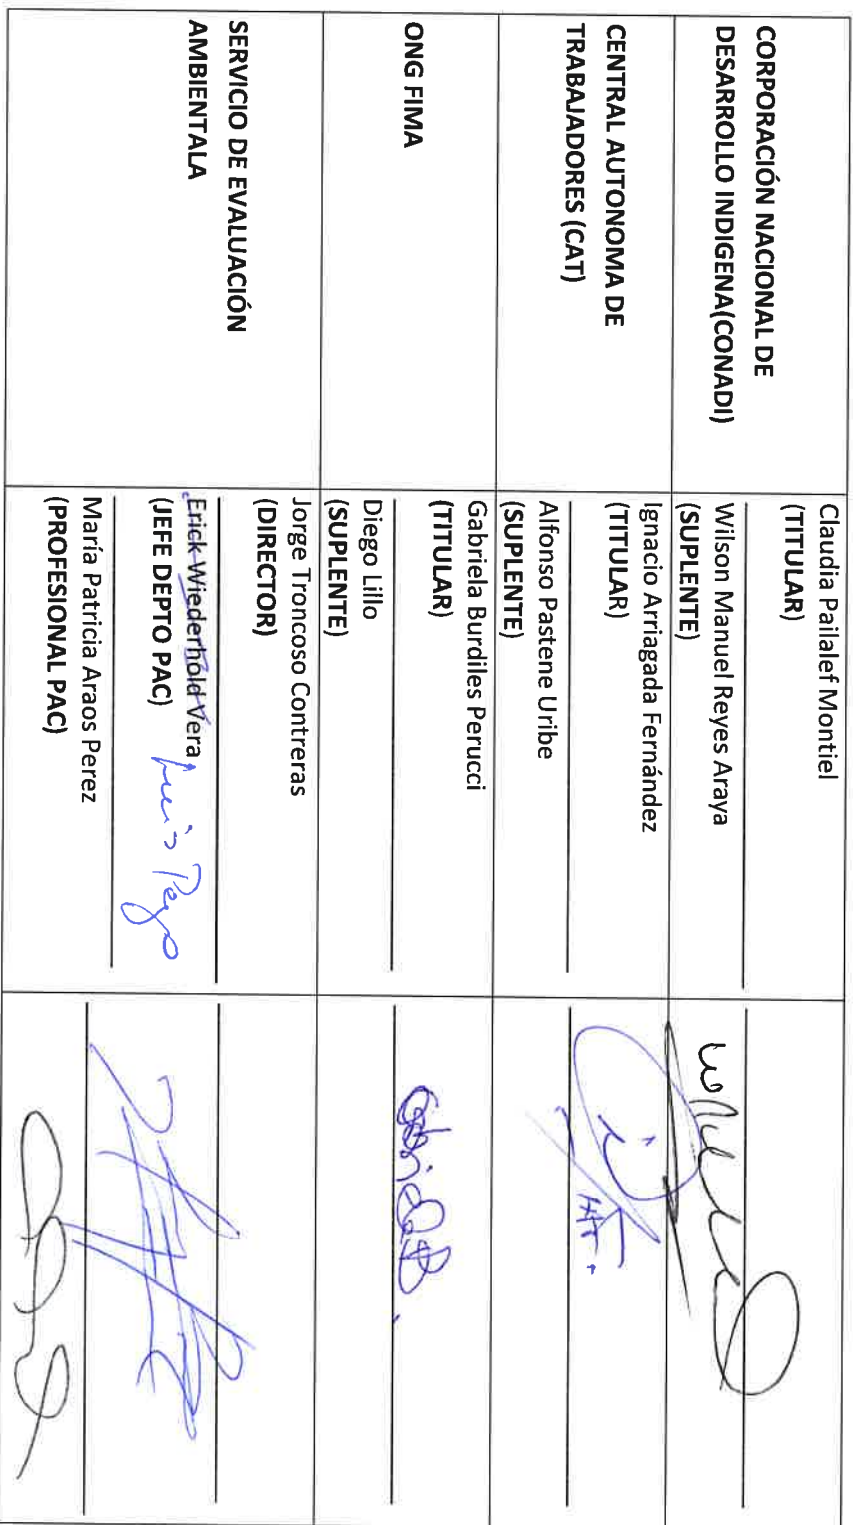 CORPORACIÓN NACIONAL DE
DESARROLLO INDIGENA(CONADI)
Claudia Pailalef Montiel
(TITULAR)
Wilson Manuel Reyes Araya
(SUPLENTE)
CENTRAL AUTONOMA DE
TRABAJADORES (CAT)
Ignacio Arriagada Fernández
(TITULAR)
Alfonso Pastene Uribe
(SUPLENTE)
ONG FIMA
Gabriela Burdiles Perucci
(TITULAR)
Gabriela B.
Diego Lillo
(SUPLENTE)
SERVICIO DE EVALUACIÓN
AMBIENTALA
Jorge Troncoso Contreras
(DIRECTOR)
Erick Wiederhold Vera
(JEFE DEPTO PAC) Luis
María Patricia Araos Perez
(PROFESIONAL PAC)